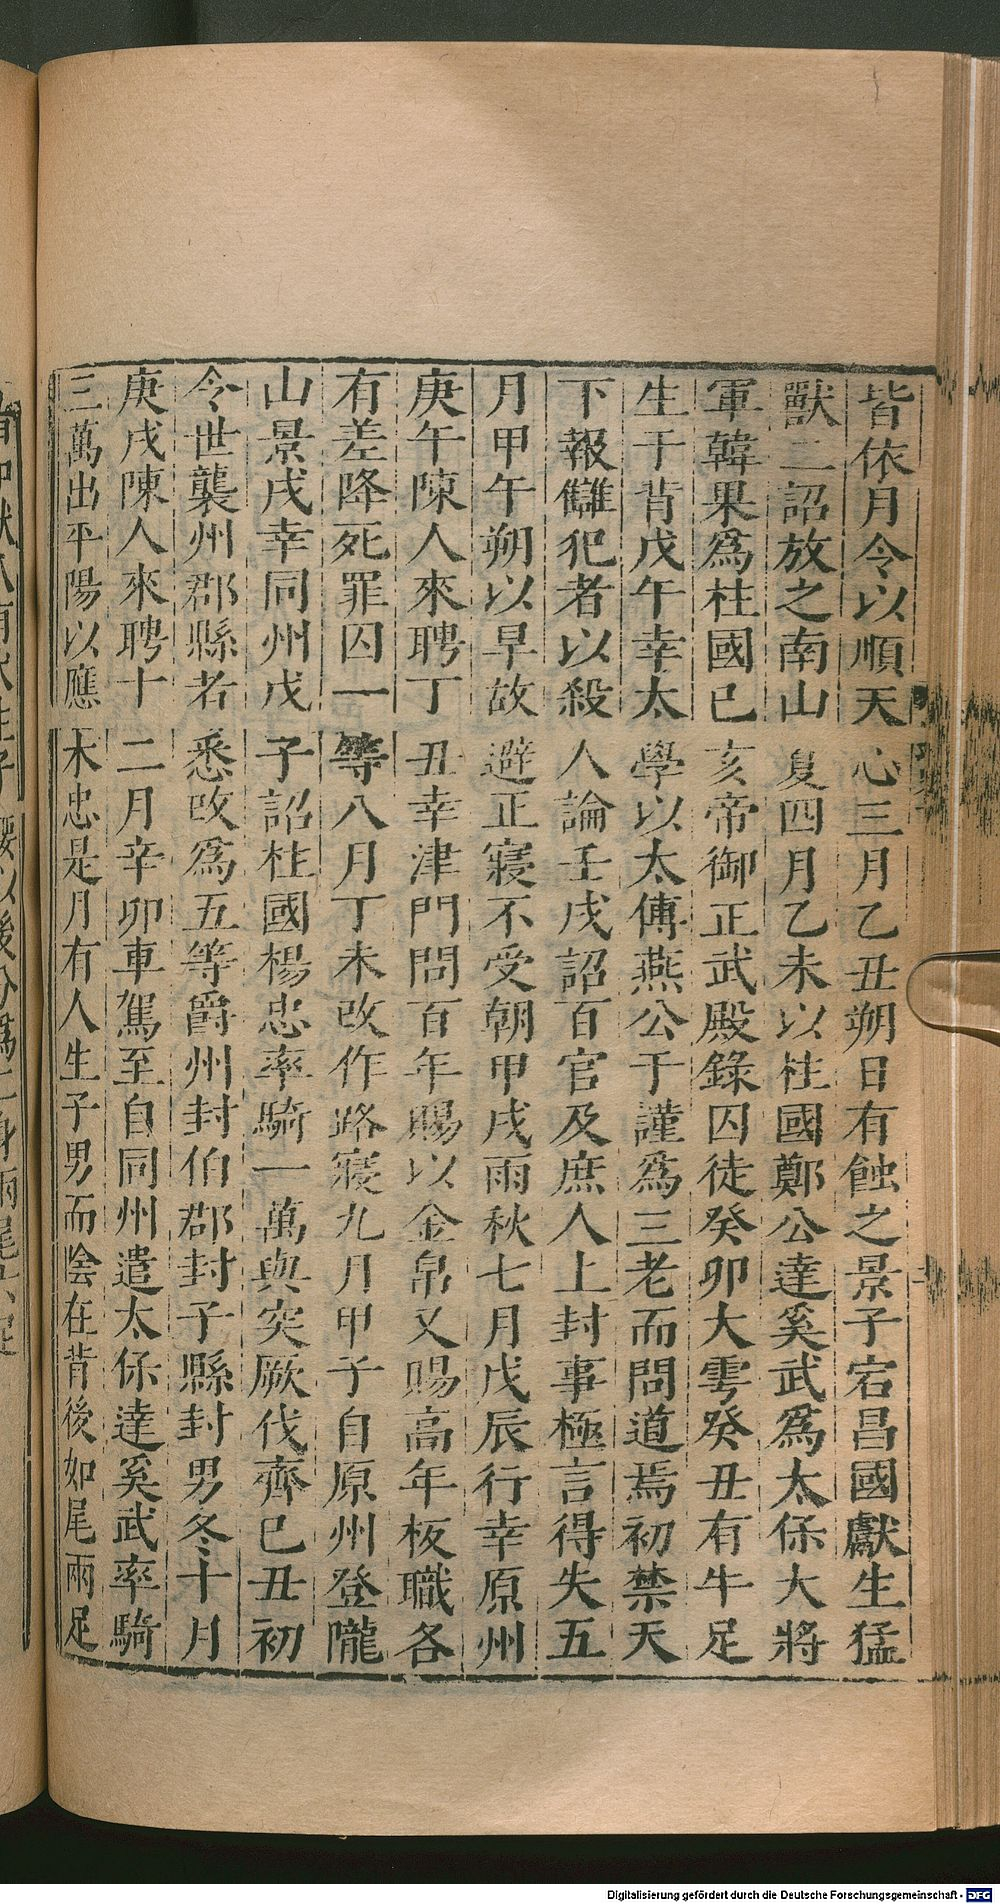 皆依月令以順天心三月乙丑朔日有蝕之景子宕昌國獻生猛
獸二詔放之南山夏四月乙未以柱國鄭公達奚武爲太保大將
軍韓果爲柱國已亥帝御正武殿錄囚徒癸卯大雩癸丑有牛足
生于背戊午幸太學以太傅燕公于謹爲三老而問道焉初禁天
下報讎犯者以殺人論壬戌詔百官及庶人上封事極言得失五
月甲午朔以旱故避正寢不受朝甲戌雨秋七月戊辰行幸原州
庚午陳人來聘丁丑幸津門問百年賜以金帛又賜高年板職各
有差降死罪囚一等八月丁未改作路寢九月甲子自原州登隴
山景戌幸同州戊子詔柱國楊忠率騎一萬與突厥伐齊已丑初
令世襲州郡縣者悉改爲五等爵州封伯郡封子縣封男冬十月
庚戌陳人來聘十二月辛卯車駕至自同州遣太保達奚武率騎
三萬出平陽以應木忠是月有人生子男而陰在背後如尾兩足
Digitalisierung gefördert durch die Deutsche Forschungsgemeinschaft - DFG